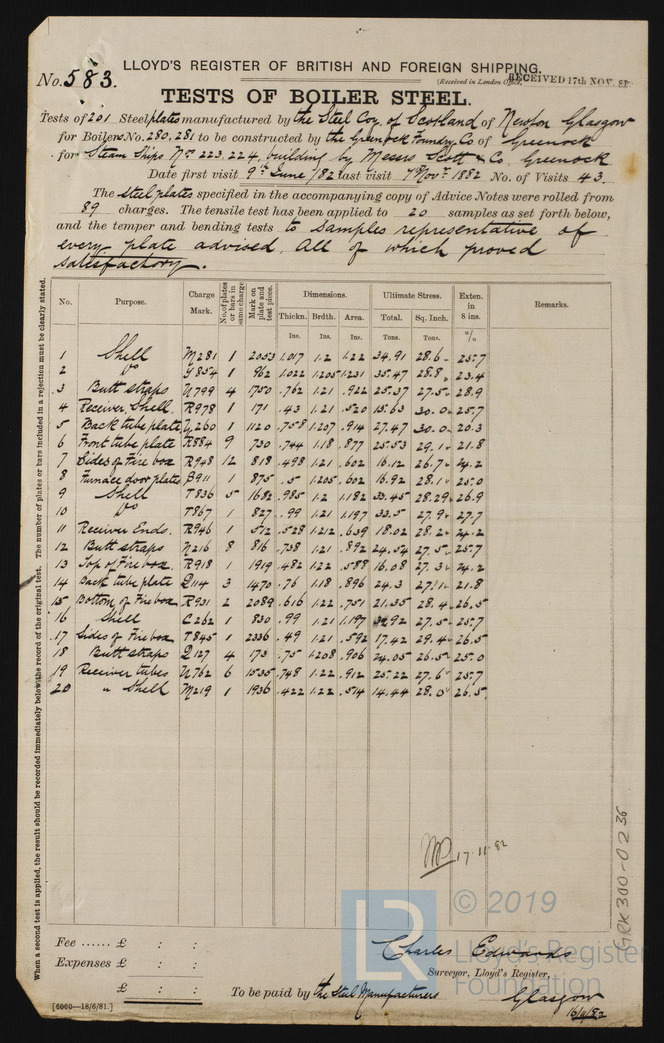 LLOYD'S REGISTER OF BRITISH AND FOREIGN SHIPPING.
No. 583.
(Received in London Office, RECEIVED 17th NOV. 82
TESTS OF BOILER STEEL.
Tests of 201 Steel plates manufactured by the Steel Coy. of Scotland of Newton Glasgow
for Boilers No. 280, 281 to be constructed by the Greenock Foundry Co of Greenock
for Steam Ships Nos 223, 224, building by Messrs Scott & Co. Greenock
Date first visit 9th June /82 last visit 7th Novr. 1882 No. of Visits 43.
The steel plates specified in the accompanying copy of Advice Notes were rolled from
89 charges. The tensile test has been applied to 20 samples as set forth below,
and the temper and bending tests to samples representative of
every plate advised. All of which proved
satisfactory.
When a second test is applied, the result should be recorded immediately below the record of the original test. The number of plates or bars included in a rejection must be clearly stated.
No. Purpose. Charge Mark. No. of plates or bars in same charge Mark on plate and test piece. Dimensions. Ultimate Stress. Exten. in 8 ins. Remarks.
Thickn. Brdth. Area. Total. Sq. Inch.
Ins. Ins. Ins. Tons. Tons. %
1 Shell M281 1 2053 1.017 1.2 1.22 34.91 28.6 25.7
2 Do Y854 1 962 1.022 1.205 1.231 35.47 28.8 23.4
3 Butt straps U799 4 1750 .762 1.21 .922 25.37 27.5 28.9
4 Receiver Shell. R978 1 171 .43 1.21 .520 15.63 30.0 25.7
5 Back tube plate U260 1 1120 .758 1.207 .914 27.47 30.0 20.3
6 Front tube plate R884 9 730 .744 1.18 .877 25.53 29.1 21.8
7 Sides of Fire box R948 12 818 .498 1.21 .602 16.12 26.7 24.2
8 Furnace door plates B911 1 875 .5 1.205 .602 16.92 28.1 25.0
9 Shell T836 5 1682 .985 1.2 1.182 33.45 28.29 26.9
10 Do T867 1 827 .99 1.21 1.197 33.5 27.9 27.7
11 Receiver Ends. R946 1 512 .528 1.212 .639 18.02 28.2 24.2
12 Butt straps U216 8 816 .738 1.21 .892 24.54 27.5 25.7
13 Top of Fire box R918 1 1919 .482 1.22 .588 16.08 27.3 24.2
14 Back tube plate Q114 3 1470 .76 1.18 .896 24.3 27.1 21.8
15 Bottom of Fire box R931 2 2089 .616 1.22 .751 21.35 28.4 26.5
16 Shell C262 1 830 .99 1.21 1.197 32.92 27.5 25.7
17 Sides of Fire box T845 1 2336 .49 1.21 .592 17.42 29.4 26.5
18 Butt straps Q127 4 173 .75 1.208 .906 24.05 26.5 25.0
19 Receiver tubes U762 6 1535 .748 1.22 .912 25.22 27.6 25.7
20 " Shell M219 1 1936 .422 1.22 .514 14.44 28.0 26.5
17.11.82
GRK300-0236
© 2019
LR
Lloyd's Register
Foundation
Fee ...... £ : :
Expenses £ : :
£ : :
Charles Edwards
Surveyor, Lloyd's Register,
To be paid by the Steel Manufacturers
Glasgow
16/11/82
[6000—18/6/81.]